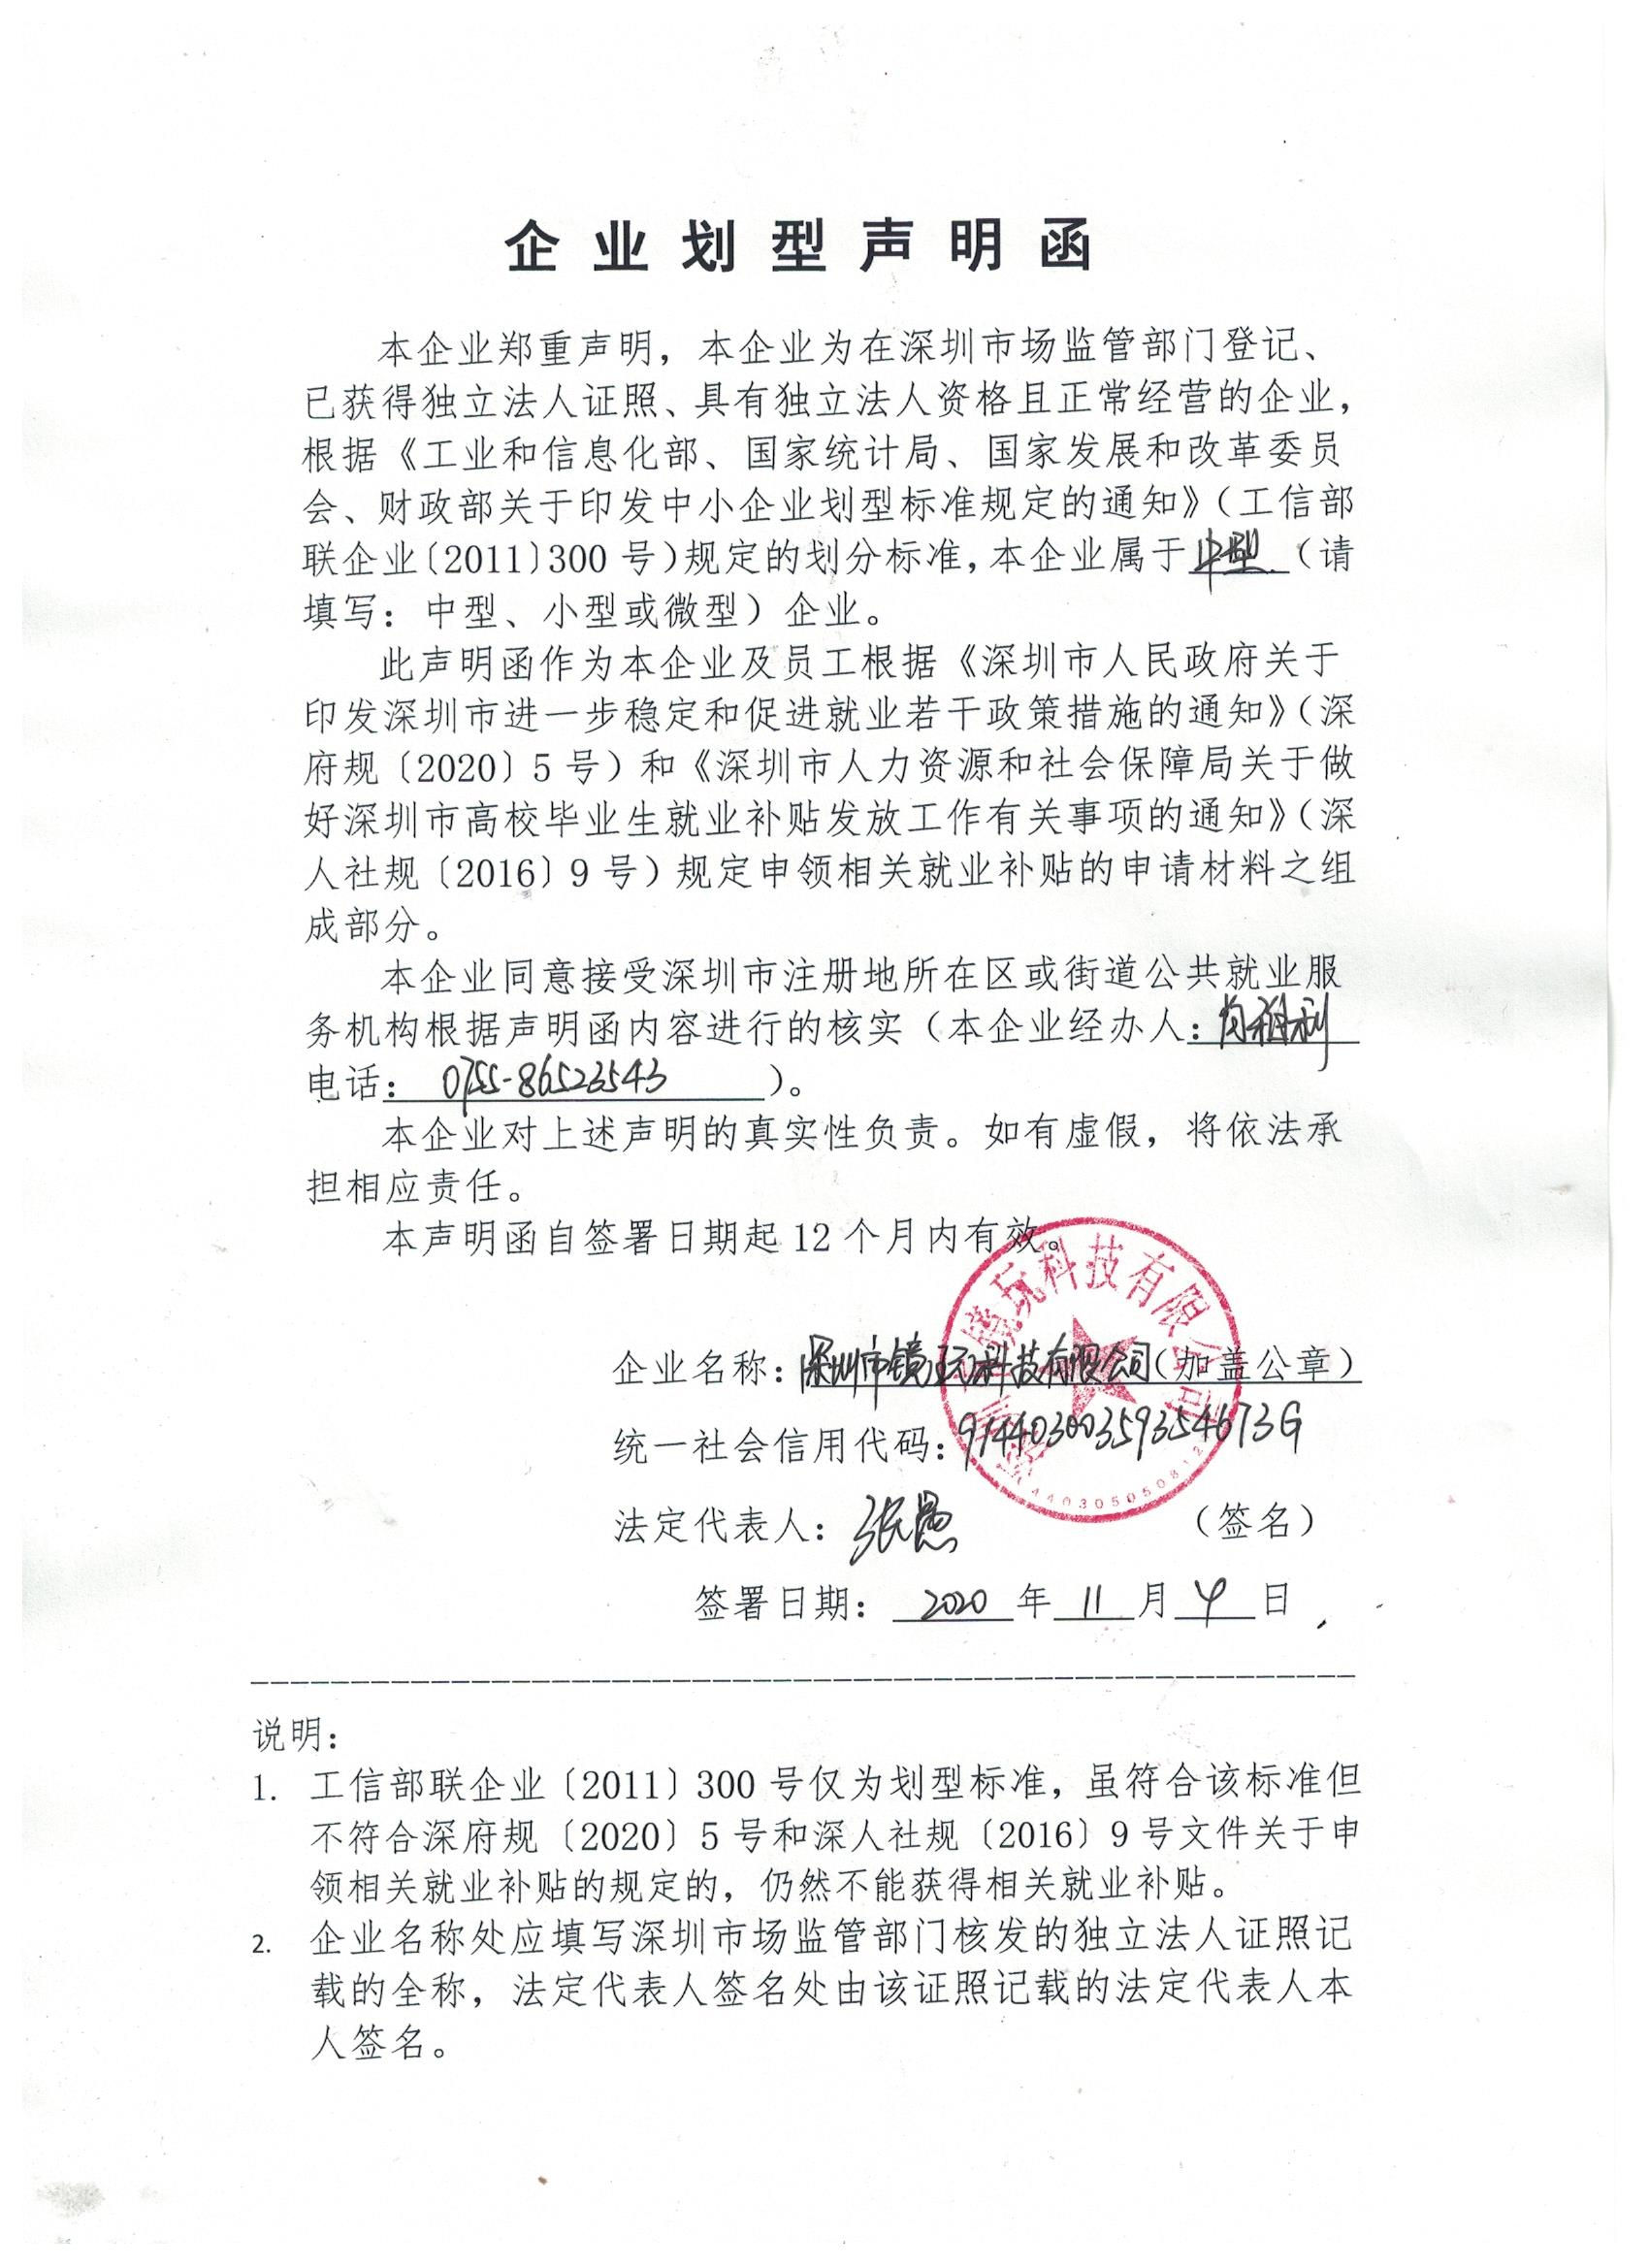 企业划型声明函
本企业郑重声明，本企业为在深圳市场监管部门登记、
已获得独立法人证照、具有独立法人资格且正常经营的企业，
根据《工业和信息化部、国家统计局、国家发展和改革委员
会、财政部关于印发中小企业划型标准规定的通知》（工信部
联企业〔2011〕300 号）规定的划分标准，本企业属于中型（请
填写：中型、小型或微型）企业。
此声明函作为本企业及员工根据《深圳市人民政府关于
印发深圳市进一步稳定和促进就业若干政策措施的通知》（深
府规〔2020〕5 号）和《深圳市人力资源和社会保障局关于做
好深圳市高校毕业生就业补贴发放工作有关事项的通知》（深
人社规〔2016〕9 号）规定申领相关就业补贴的申请材料之组
成部分。
本企业同意接受深圳市注册地所在区或街道公共就业服
务机构根据声明函内容进行的核实（本企业经办人：
电话：0755-86523543）。
本企业对上述声明的真实性负责。如有虚假，将依法承
担相应责任。
本声明函自签署日期起 12 个月内有效。
企业名称：深圳市镜玩科技有限公司（加盖公章）
深圳市镜玩科技有限公司
统一社会信用代码：91440300359354673G
法定代表人：张（签名）
签署日期：2020 年 11 月 4 日
说明：
1. 工信部联企业〔2011〕300 号仅为划型标准，虽符合该标准但
不符合深府规〔2020〕5 号和深人社规〔2016〕9 号文件关于申
领相关就业补贴的规定的，仍然不能获得相关就业补贴。
2. 企业名称处应填写深圳市场监管部门核发的独立法人证照记
载的全称，法定代表人签名处由该证照记载的法定代表人本
人签名。